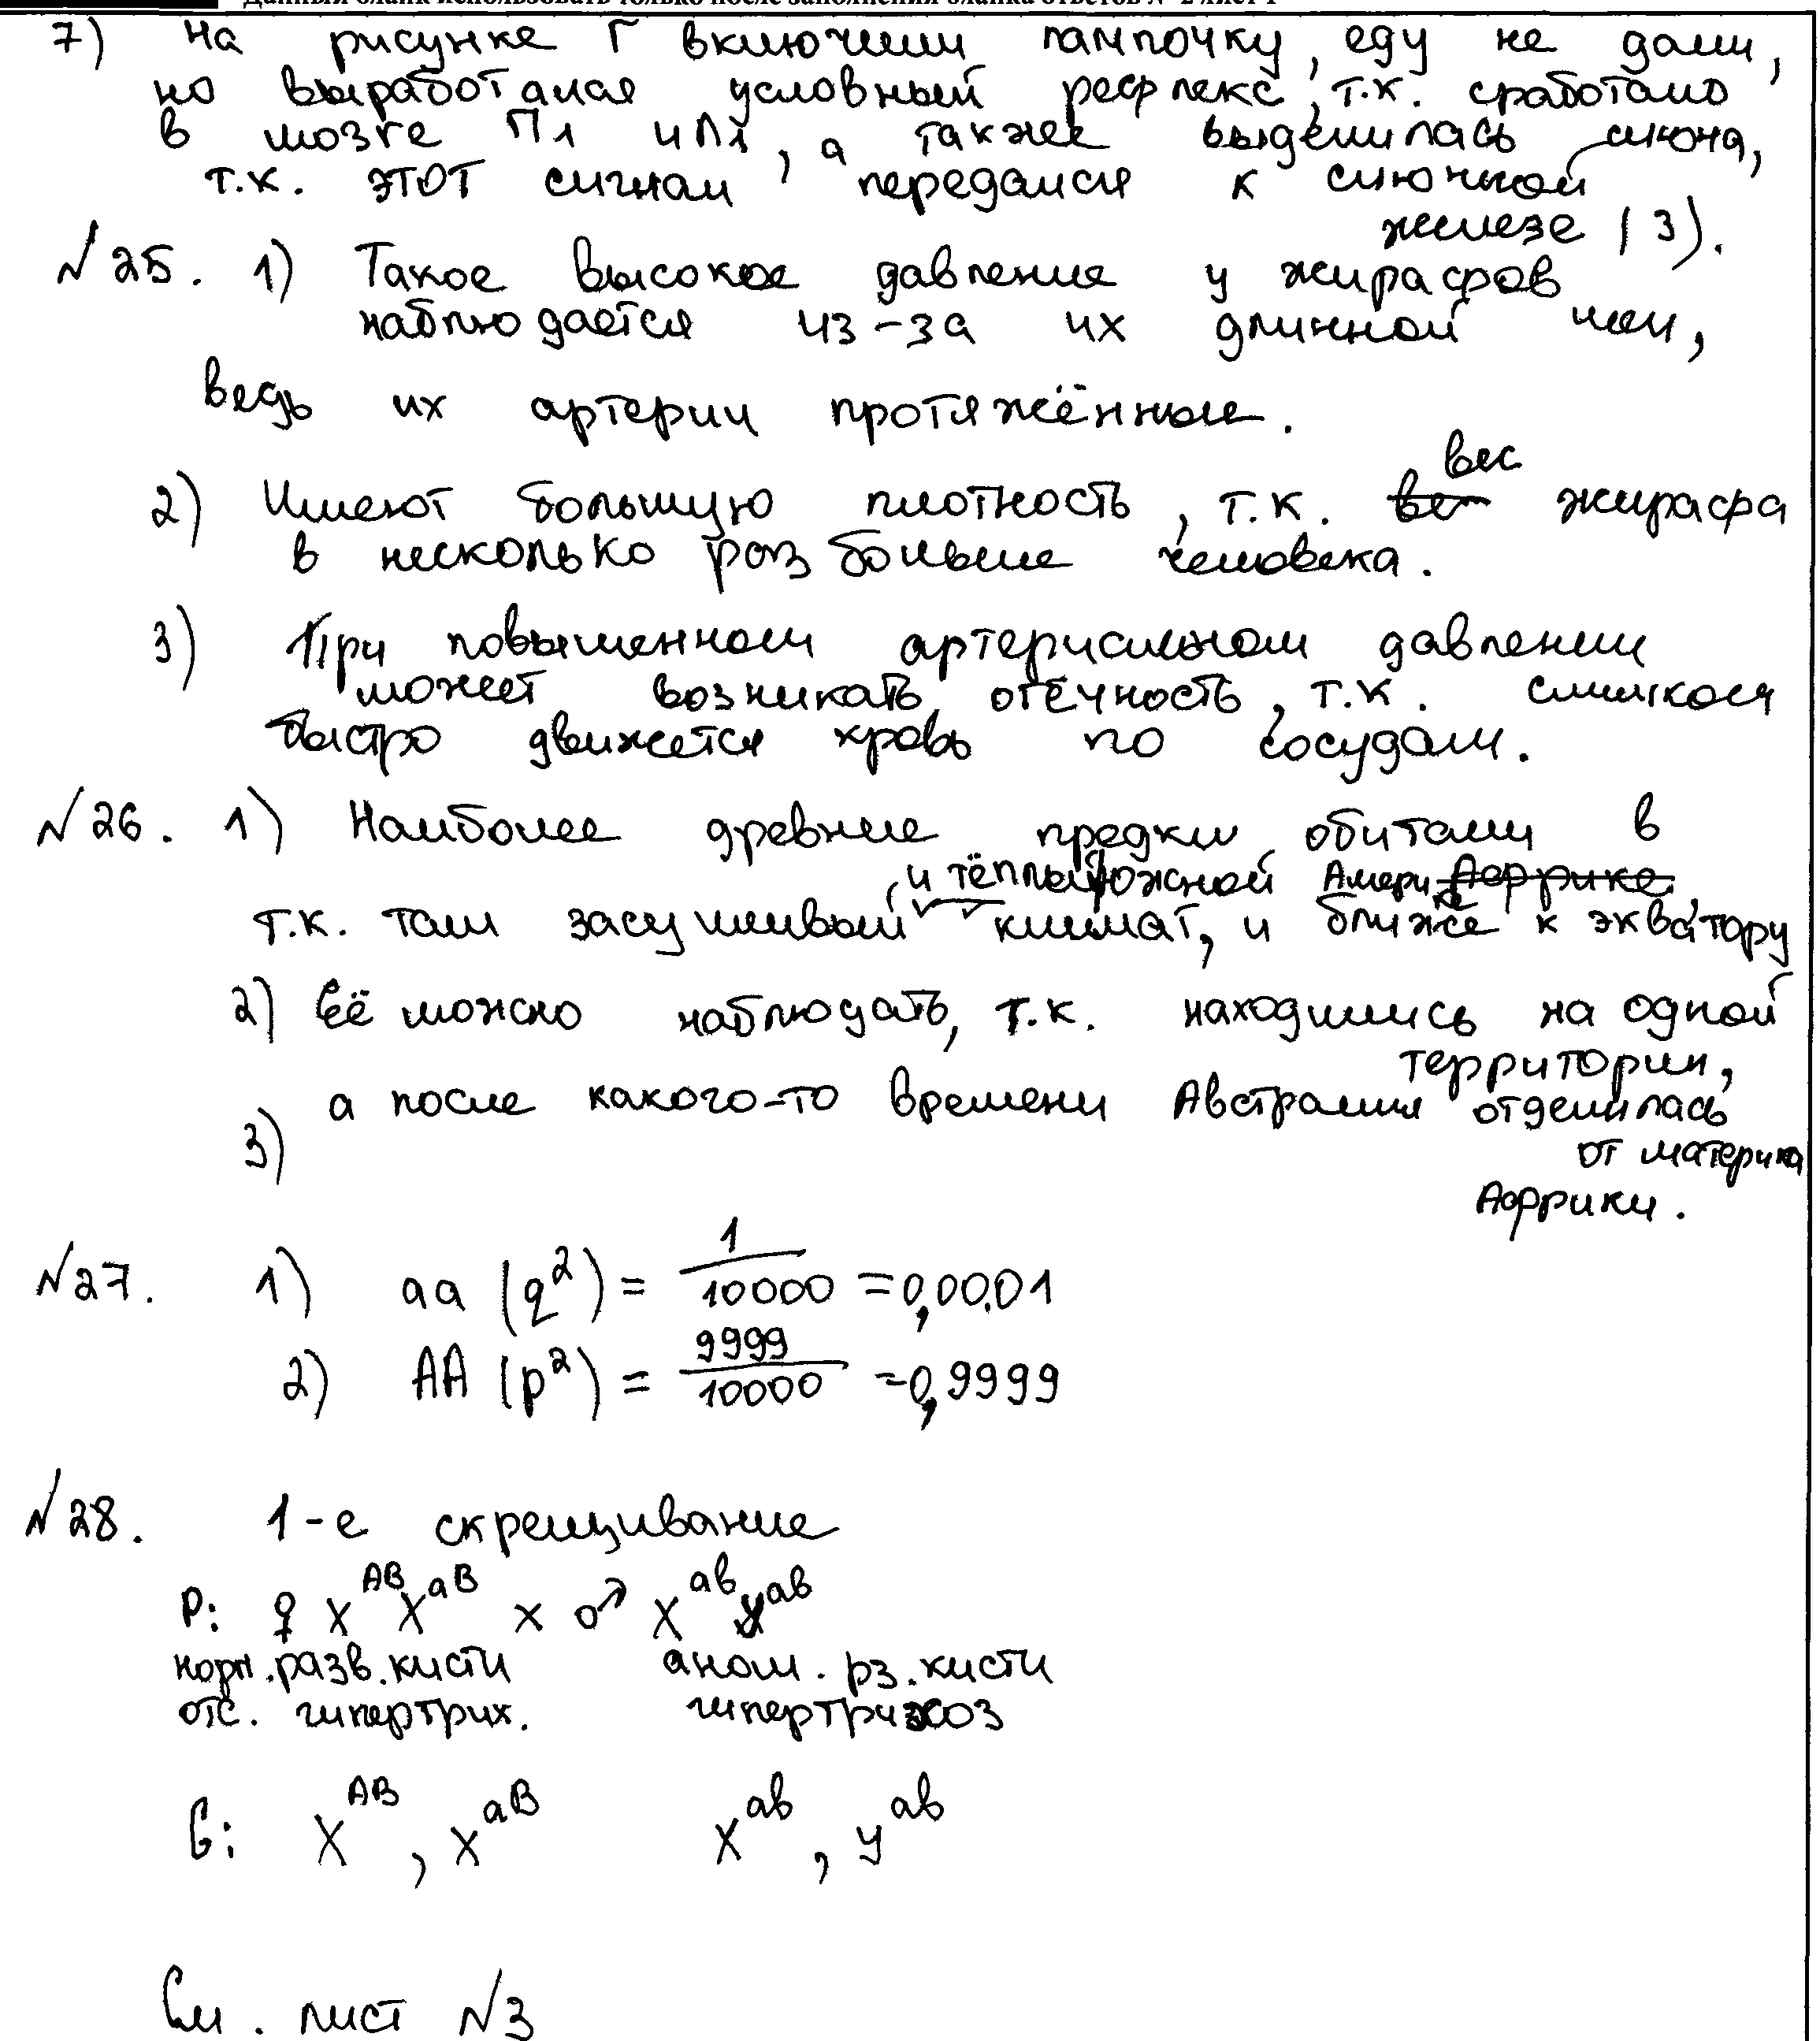 Данный бланк использовать только после заполнения бланка ответов № 2 лист 1
7) На рисунке Г включили лампочку, еду не дали,
но выработался условный рефлекс, т.к. сработало
в мозге П1 и Л1, а также выделилась слюна,
т.к. этот сигнал передался к слюнной
железе (3).
№25. 1) Такое высокое давление у жирафов
наблюдается из-за их длинной шеи,
ведь их артерии протяжённые.
2) Имеют большую плотность, т.к. вес жирафа
в несколько раз больше человека.
3) При повышенном артериальном давлении
может возникать отёчность, т.к. слишком
быстро движется кровь по сосудам.
№26. 1) Наиболее древние предки обитали в
Южной Америке Африке,
т.к. там засушливый и тёплый климат, и ближе к экватору
2) Её можно наблюдать, т.к. находились на одной
территории,
а после какого-то времени Австралия отделилась
от материка
Африки.
3)
№27. 1) aa (q²) = 1/10000 = 0,0001
2) AA (p²) = 9999/10000 = 0,9999
№28. 1-е скрещивание
P: ♀ X^AB X^aB x ♂ X^ab Y^ab
норм. разв. кисти аном. рз. кисти
отс. гипертрих. гипертрихоз
G: X^AB, X^aB X^ab, Y^ab
См. лист №3